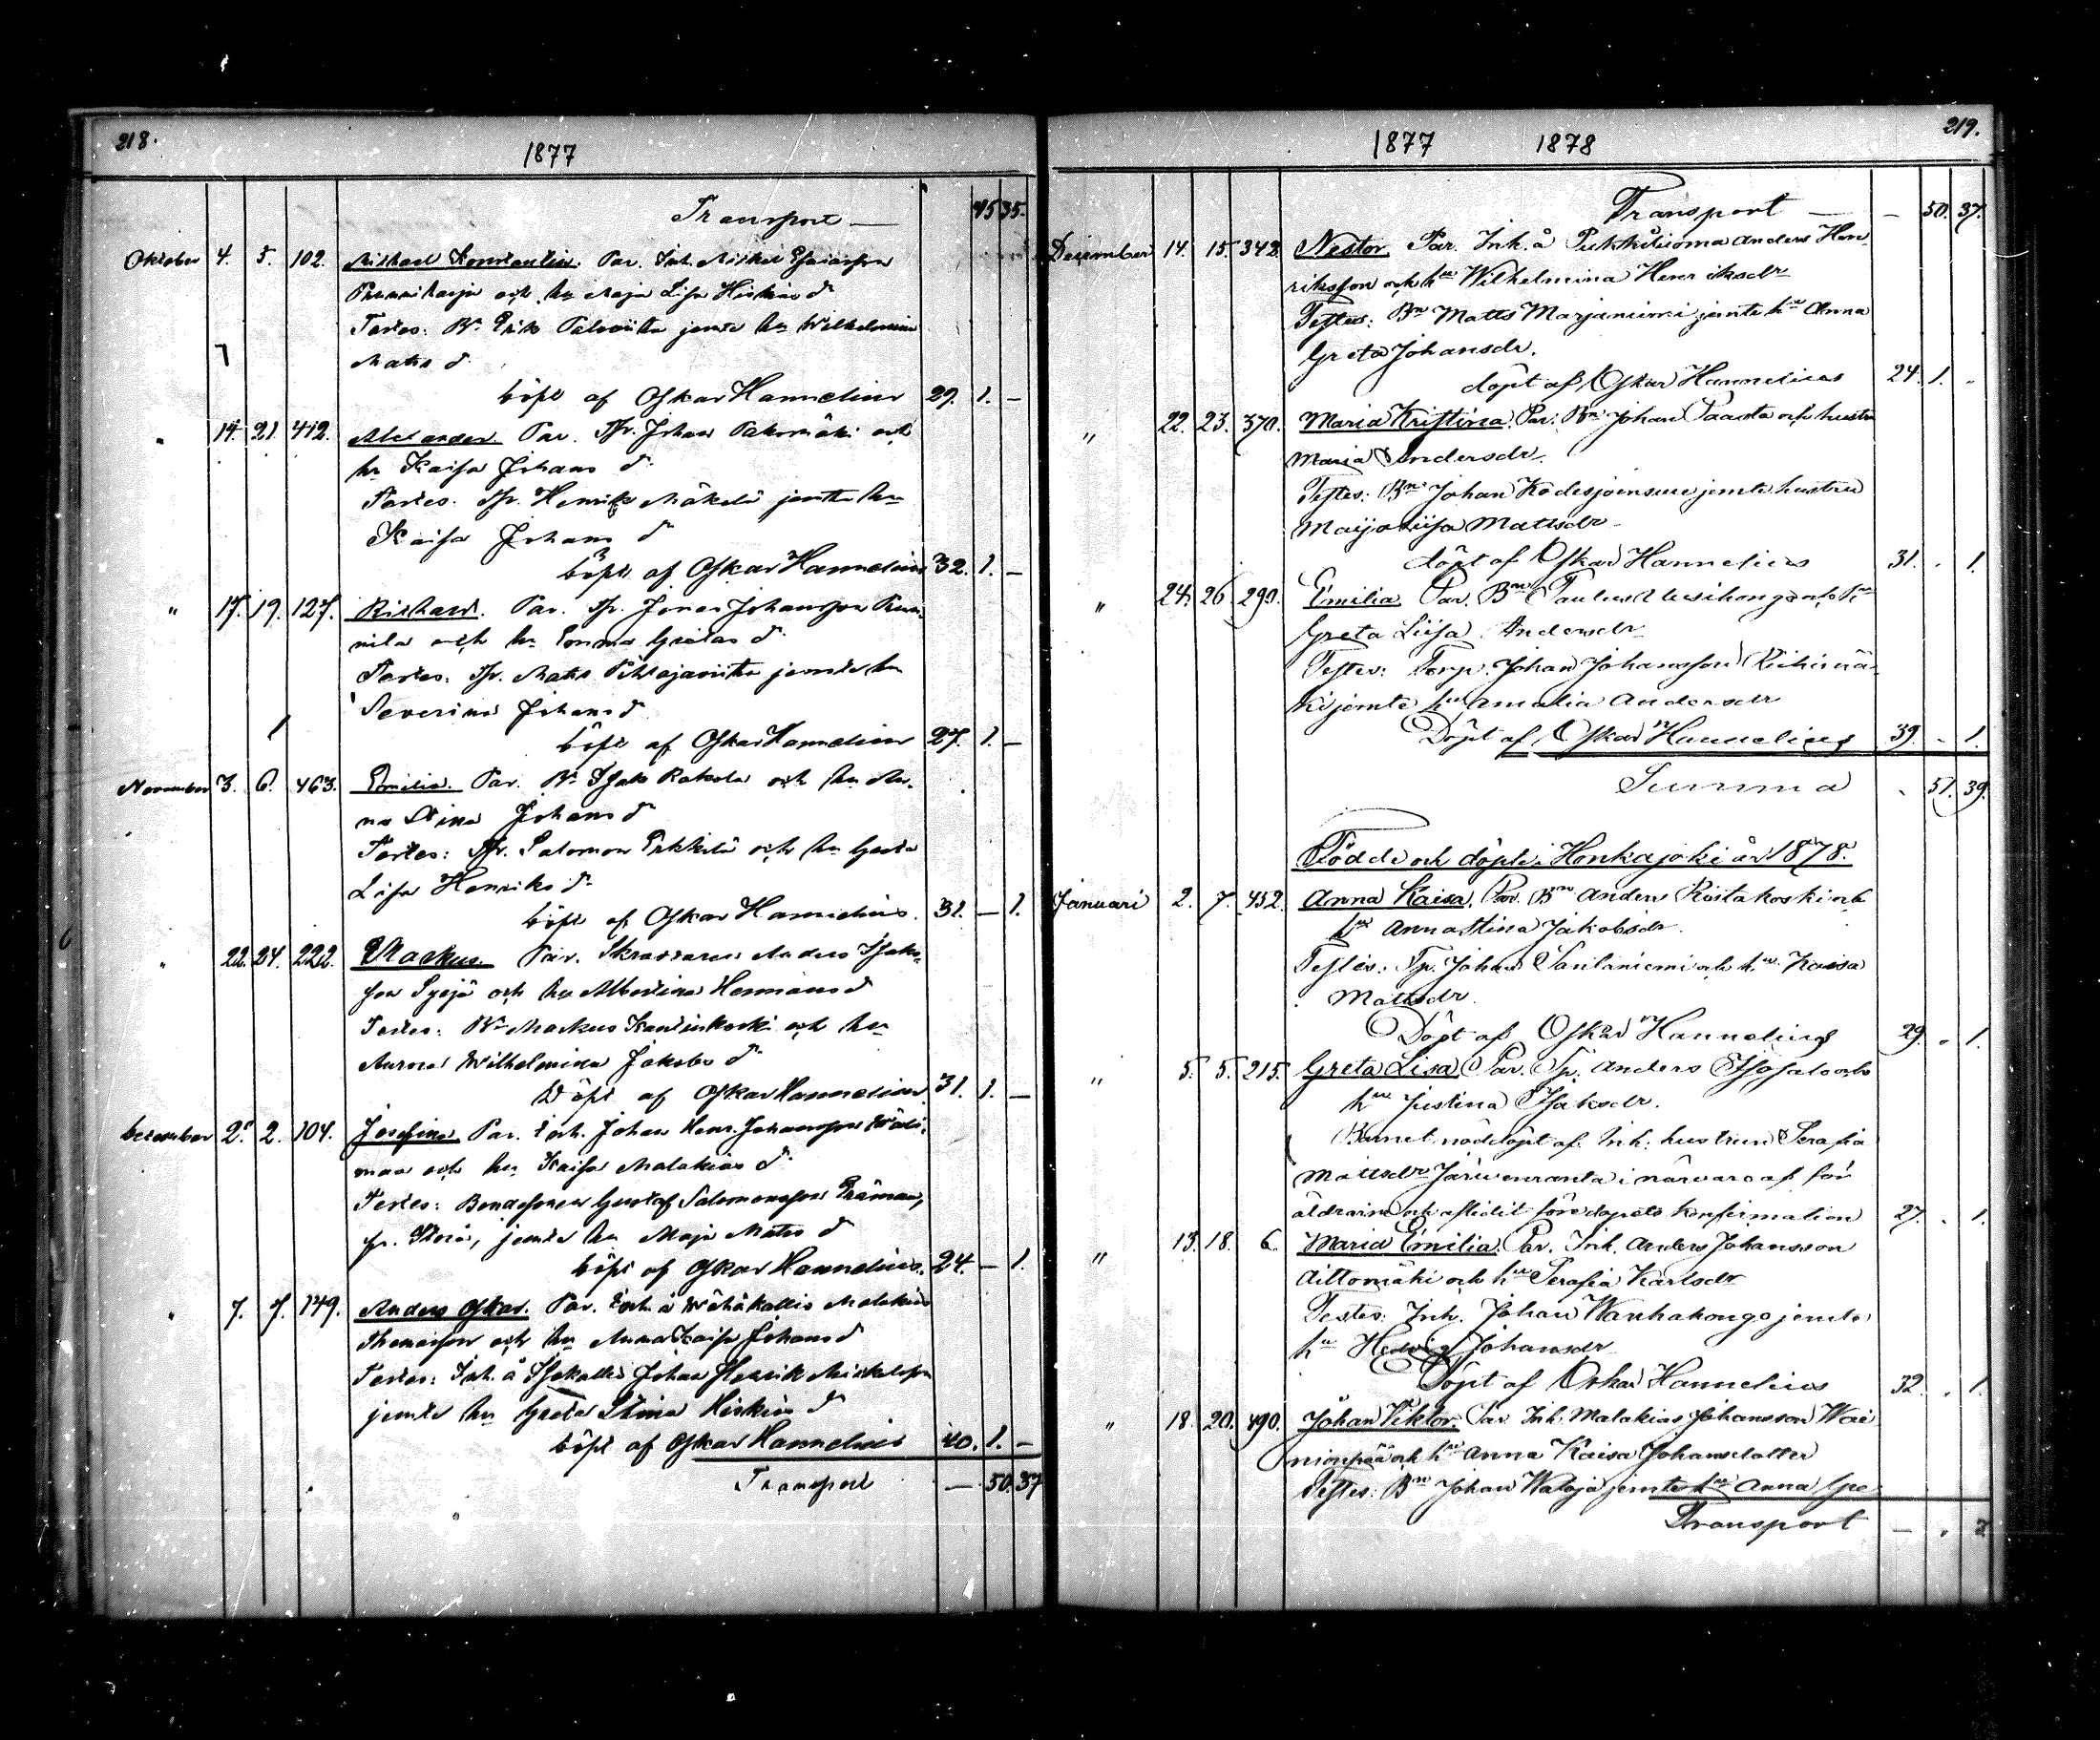 218.
1877
Transport — 45 35.
Oktober 4. 5. 102. Mickael Konstantin. Par. Inh. Mickel Esaiasson
och hu Maja Lisa Hiskias dr
Testes: Bn Erik jemte hu Wilhelmina
Mats dr
döpt af Oskar Hannelius 29. 1. —
" 14. 21. 412. Alexander. Par. Tp. Johan Takomäki och
hu Kaisa Johans dr
Testes. Tp. Henrik Mäkelä jemte hu
Kaisa Johans dr
döpt af Oskar Hannelius 32. 1. —
" 17. 19. 127. Richard. Par. Tp. Jonas Johansson
och hu Emma Gretas dr
Testes. Tp. Mats Pihlajaviita jemte hu
Severina Johans dr
döpt af Oskar Hannelius 27. 1. —
November 3. 6. 463. Emilia. Par. Bn Isak Rakola och hu An-
na Stina Johans dr
Testes: Tp. Salomon Erkkilä och hu Greta
Lisa Henriks dr
döpt af Oskar Hannelius. 31. — 1.
" 22. 24. 222. Markus. Par. Skräddaren Anders Isaks-
son Syrjä och hu Albertina Hermans dr
Testes: Bn Markus Kantinkoski och hu
Aurora Wilhelmina Jakobs dr
Döpt af Oskar Hannelius 31. 1. —
December 2. 2. 104. Josefina. Par. Inh. Johan Henr. Johansson
maa och hu Kaisa Malakias dr
Testes: Bondesonen Gustaf Salomonsson
fr. Storå, jemte hu Maja Mats dr
döpt af Oskar Hannelius. 24. — 1.
" 7. 7. 149. Anders Oskar. Par. Inh. å Wähäkallio Malakias
Thomasson och hu Anna Kaisa Johans dr
Testes: Inh. å Isokallio Johan Henrik Mickelsson
jemte hu Greta Stina Hiskias dr
döpt af Oskar Hannelius 40. 1. —
Transport — 50. 37
219.
1877 1878
Transport — — 50. 37.
December 14. 15. 342. Nestor. Par. Inh. å Pukkiluoma Anders Hen-
riksson och hu Wilhelmina Henriksdr
Testes: Bn Matts Marjaniemi jemte hu Anna
Greta Johansdr.
döpt af Oskar Hannelius 24. 1. "
" 22. 23. 370. Maria Kristina. Par. Bn Johan Paasto och hustru
Maria Andersdr.
Testes: Bn Johan Kodesjoensuu jemte hustru
Maija Liisa Mattsdr
döpt af Oskar Hannelius 31. " 1.
" 24. 26. 290. Emilia. Par. Bn Paulus Uusihonga och hu
Greta Liisa Andersdr
Testes: Torp. Johan Johansson Riihimä-
ki jemte hu Amalia Andersdr
Döpt af Oskar Hannelius 39. " 1.
Summa " 51. 39.
Födde och döpte i Honkajoki år 1878.
Januari 2. 7. 452. Anna Kaisa. Par. Bn Anders Röstakoski och
hu Anna Stina Jakobsdr.
Testes: Tp. Johan Santaniemi och hu Kaisa
Mattsdr
Döpt af Oskar Hannelius 29. " 1.
" 5. 5. 215. Greta Lisa. Par. Tp. Anders Isosalo och
hu Justina Isaksdr.
Barnet nöddöpt af Inh. hustrun Serafia
Mattsdr Järwenranta i närvaro af för-
äldrarne och aflidit före dopets konfirmation 27. " 1.
" 13. 18. 6. Maria Emilia. Par. Inh. Anders Johansson
Aittomäki och hu Serafia Karlsdr
Testes: Inh. Johan Wanhahongo jemte
hu Hedvig Johansdr
Döpt af Oskar Hannelius 32. " 1.
" 18. 20. 490. Johan Viktor. Par. Inh. Malakias Johansson Wai-
nionpää och hu Anna Kaisa Johansdotter
Testes: Bn Johan Wataja jemte hu Anna Gre-
Transport — " 2